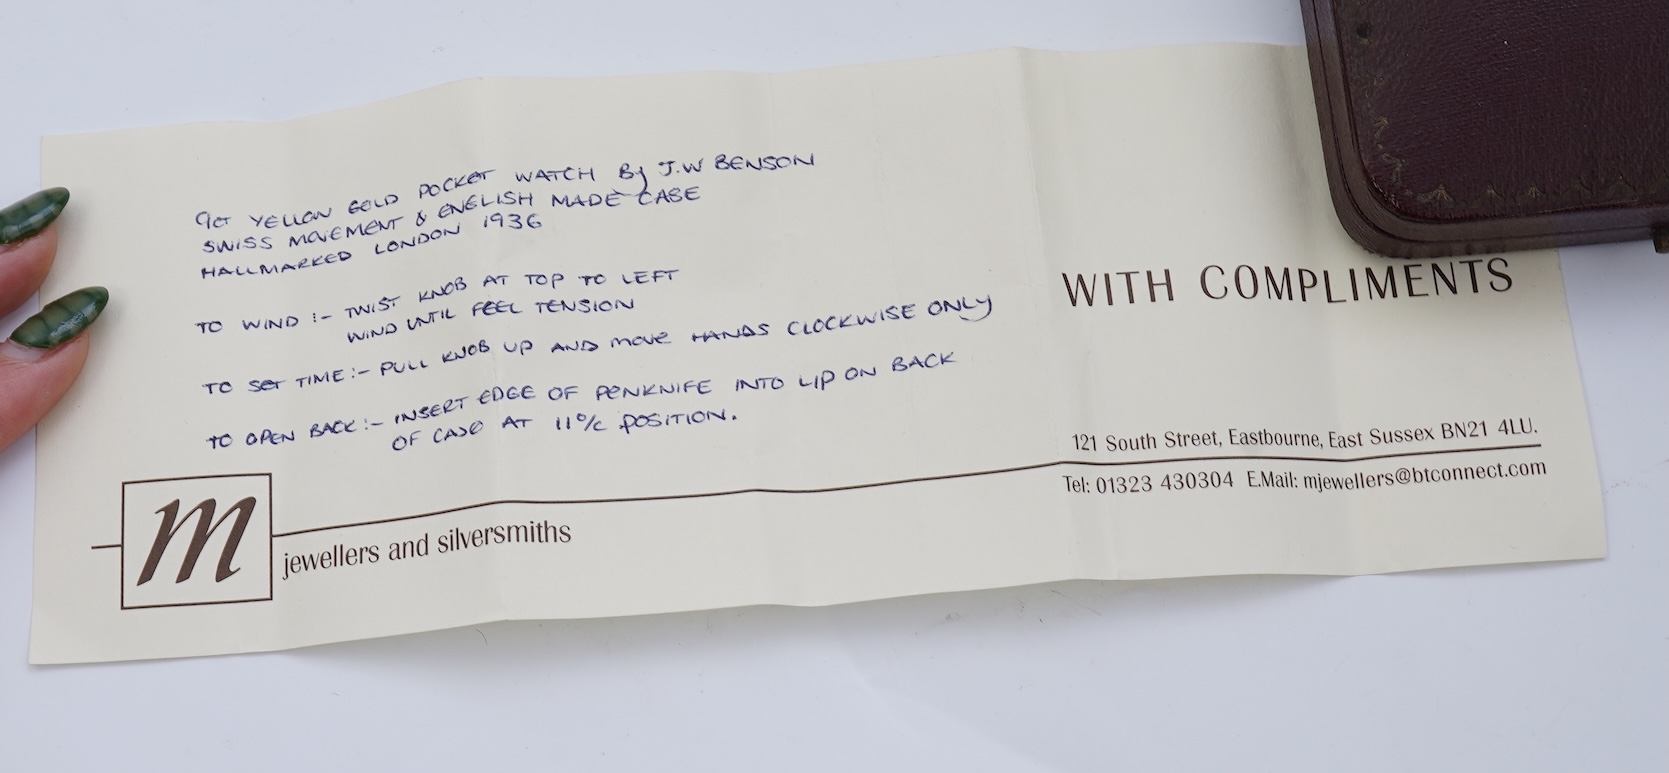 9CT YELLOW GOLD POCKET WATCH By J.W BENSON
SWISS MOVEMENT & ENGLISH MADE CASE
HALLMARKED LONDON 1936
TO WIND :- TWIST KNOB AT TOP TO LEFT
WIND UNTIL FEEL TENSION
TO SET TIME :- PULL KNOB UP AND MOVE HANDS CLOCKWISE ONLY
TO OPEN BACK :- INSERT EDGE OF PENKNIFE INTO LIP ON BACK
OF CASE AT 11 o/c POSITION.
m
jewellers and silversmiths
WITH COMPLIMENTS
121 South Street, Eastbourne, East Sussex BN21 4LU.
Tel: 01323 430304 E.Mail: mjewellers@btconnect.com